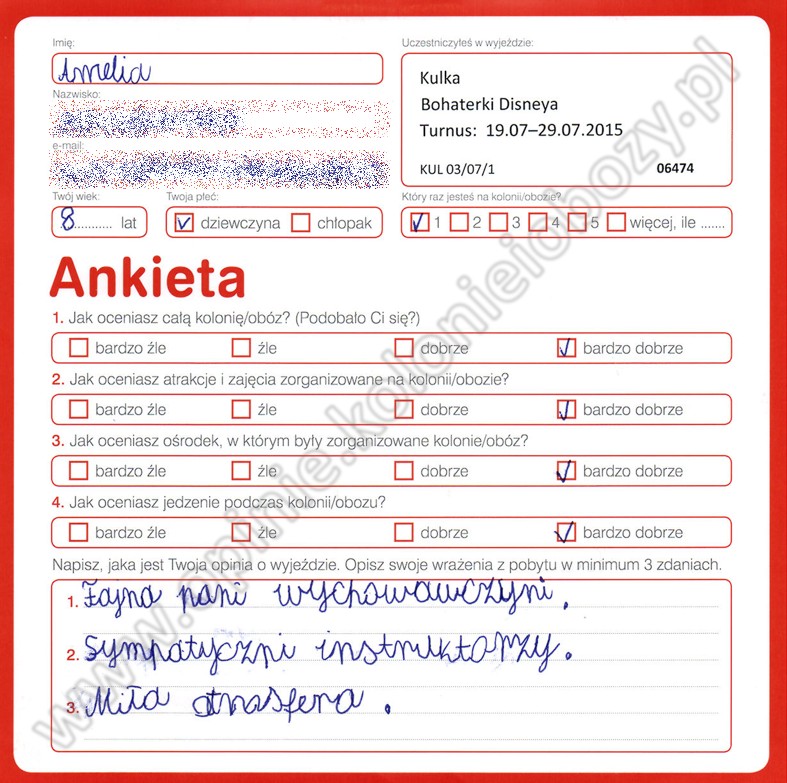 Imię:
Amelia
Uczestniczyłeś w wyjeździe:
Kulka
Bohaterki Disneya
Turnus: 19.07–29.07.2015
KUL 03/07/1 06474
Nazwisko:
e-mail:
Twój wiek:
8........... lat
Twoja płeć:
dziewczyna chłopak
Który raz jesteś na kolonii/obozie?
1 2 3 4 5 więcej, ile .......
Ankieta
1. Jak oceniasz całą kolonię/obóz? (Podobało Ci się?)
bardzo źle źle dobrze bardzo dobrze
2. Jak oceniasz atrakcje i zajęcia zorganizowane na kolonii/obozie?
bardzo źle źle dobrze bardzo dobrze
3. Jak oceniasz ośrodek, w którym były zorganizowane kolonie/obóz?
bardzo źle źle dobrze bardzo dobrze
4. Jak oceniasz jedzenie podczas kolonii/obozu?
bardzo źle źle dobrze bardzo dobrze
Napisz, jaka jest Twoja opinia o wyjeździe. Opisz swoje wrażenia z pobytu w minimum 3 zdaniach.
1. Fajna pani wychowawczyni.
2. Sympatyczni instruktorzy.
3. Miła atmasfera.
www.opinie.kolonieiobozy.pl